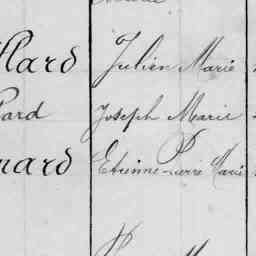 llard Julien Marie
Pard Joseph Marie
nard Etienne Pierre Marie